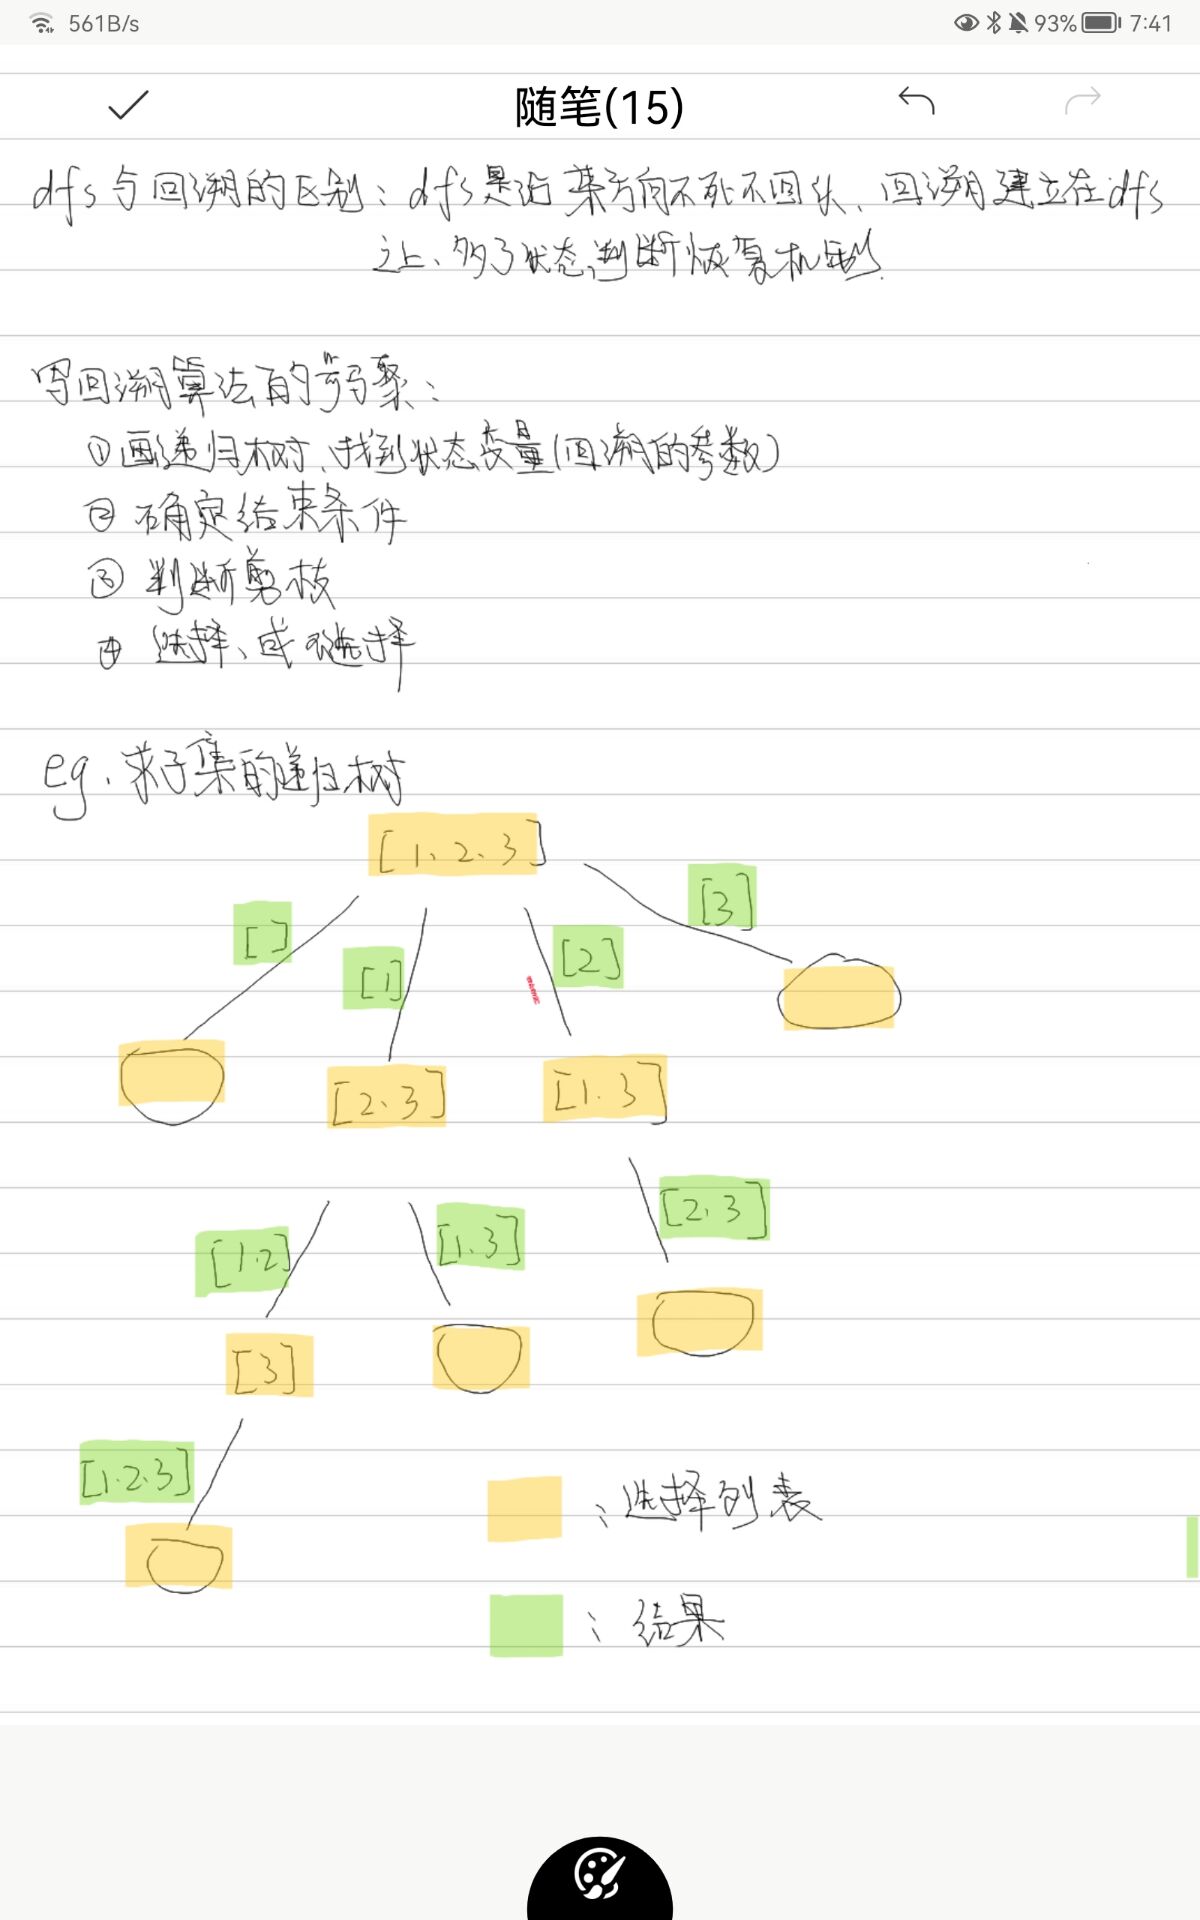 561B/s 93% 7:41
随笔(15)
dfs与回溯的区别：dfs是沿某方向不死不回头、回溯建立在dfs
之上、多了状态、判断恢复机制.
写回溯算法的步骤：
①画递归树、找到状态变量(回溯的参数)
② 确定结束条件
③ 判断剪枝
④ 选择、或不选择
eg.求子集的递归树
[1、2、3]
[3]
[]
[1]
[2]
[2、3]
[1.3]
[2.3]
[1.2]
[1.3]
[3]
[1.2.3]
：选择列表
：结果